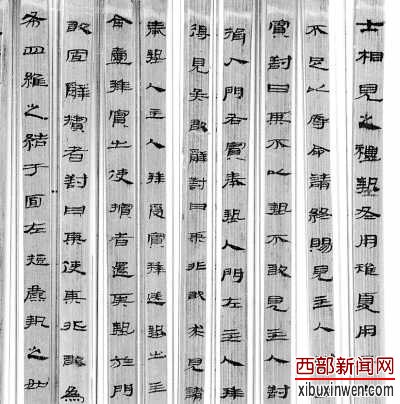 士相見之禮摯冬用雉夏用
不足以辱命請終賜見主人
賓對曰某不以摯不敢見主人對
揖入門右賓奉摯入門左主人拜
得見矣敢辭對曰某非敢求見請
奉摯入主人拜受賓拜送摯出主
命壹拜賓出使擯者還其摯於門
敢固辭擯者對曰某使某非敢為
布四維之結于面左麛執之如
西部新闻网
xibuxinwen.com